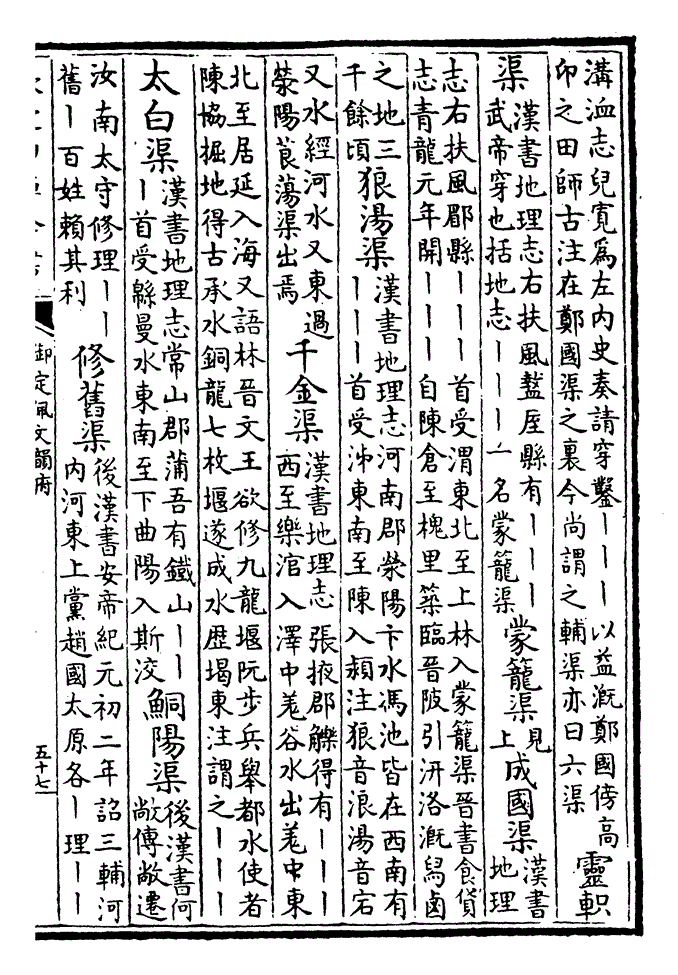 溝洫志兒寬爲左內史奏請穿鑿ーーー以益漑鄭國傍高
卬之田師古注在鄭國渠之裏今尚謂之輔渠亦曰六渠
靈軹
渠
漢書地理志右扶風盩厔縣有ーーー
武帝穿也括地志ーーー一名蒙籠渠
蒙籠渠
見
上
成國渠
漢書
地理
志右扶風郿縣ーーー首受渭東北至上林入蒙籠渠晉書食貨
志青龍元年開ーーー自陳倉至槐里築臨晉陂引汧洛漑舄鹵
之地三
千餘頃
狼湯渠
漢書地理志河南郡滎陽卞水馮池皆在西南有
ーーー首受泲東南至陳入潁注狼音浪湯音宕
又水經河水又東過
滎陽莨蕩渠出焉
千金渠
漢書地理志張掖郡觻得有ーーー
西至樂涫入澤中羌谷水出羌中東
北至居延入海又語林晉文王欲修九龍堰阮步兵舉都水使者
陳協掘地得古承水銅龍七枚堰遂成水歷堨東注謂之ーーー
太白渠
漢書地理志常山郡蒲吾有鐵山ーー
ー首受緜曼水東南至下曲陽入斯洨
鮦陽渠
後漢書何
敞傳敞遷
汝南太守修理ーー
舊ー百姓賴其利
修舊渠
後漢書安帝紀元初二年詔三輔河
內河東上黨趙國太原各ー理ーー
御定佩文韻府
五十七